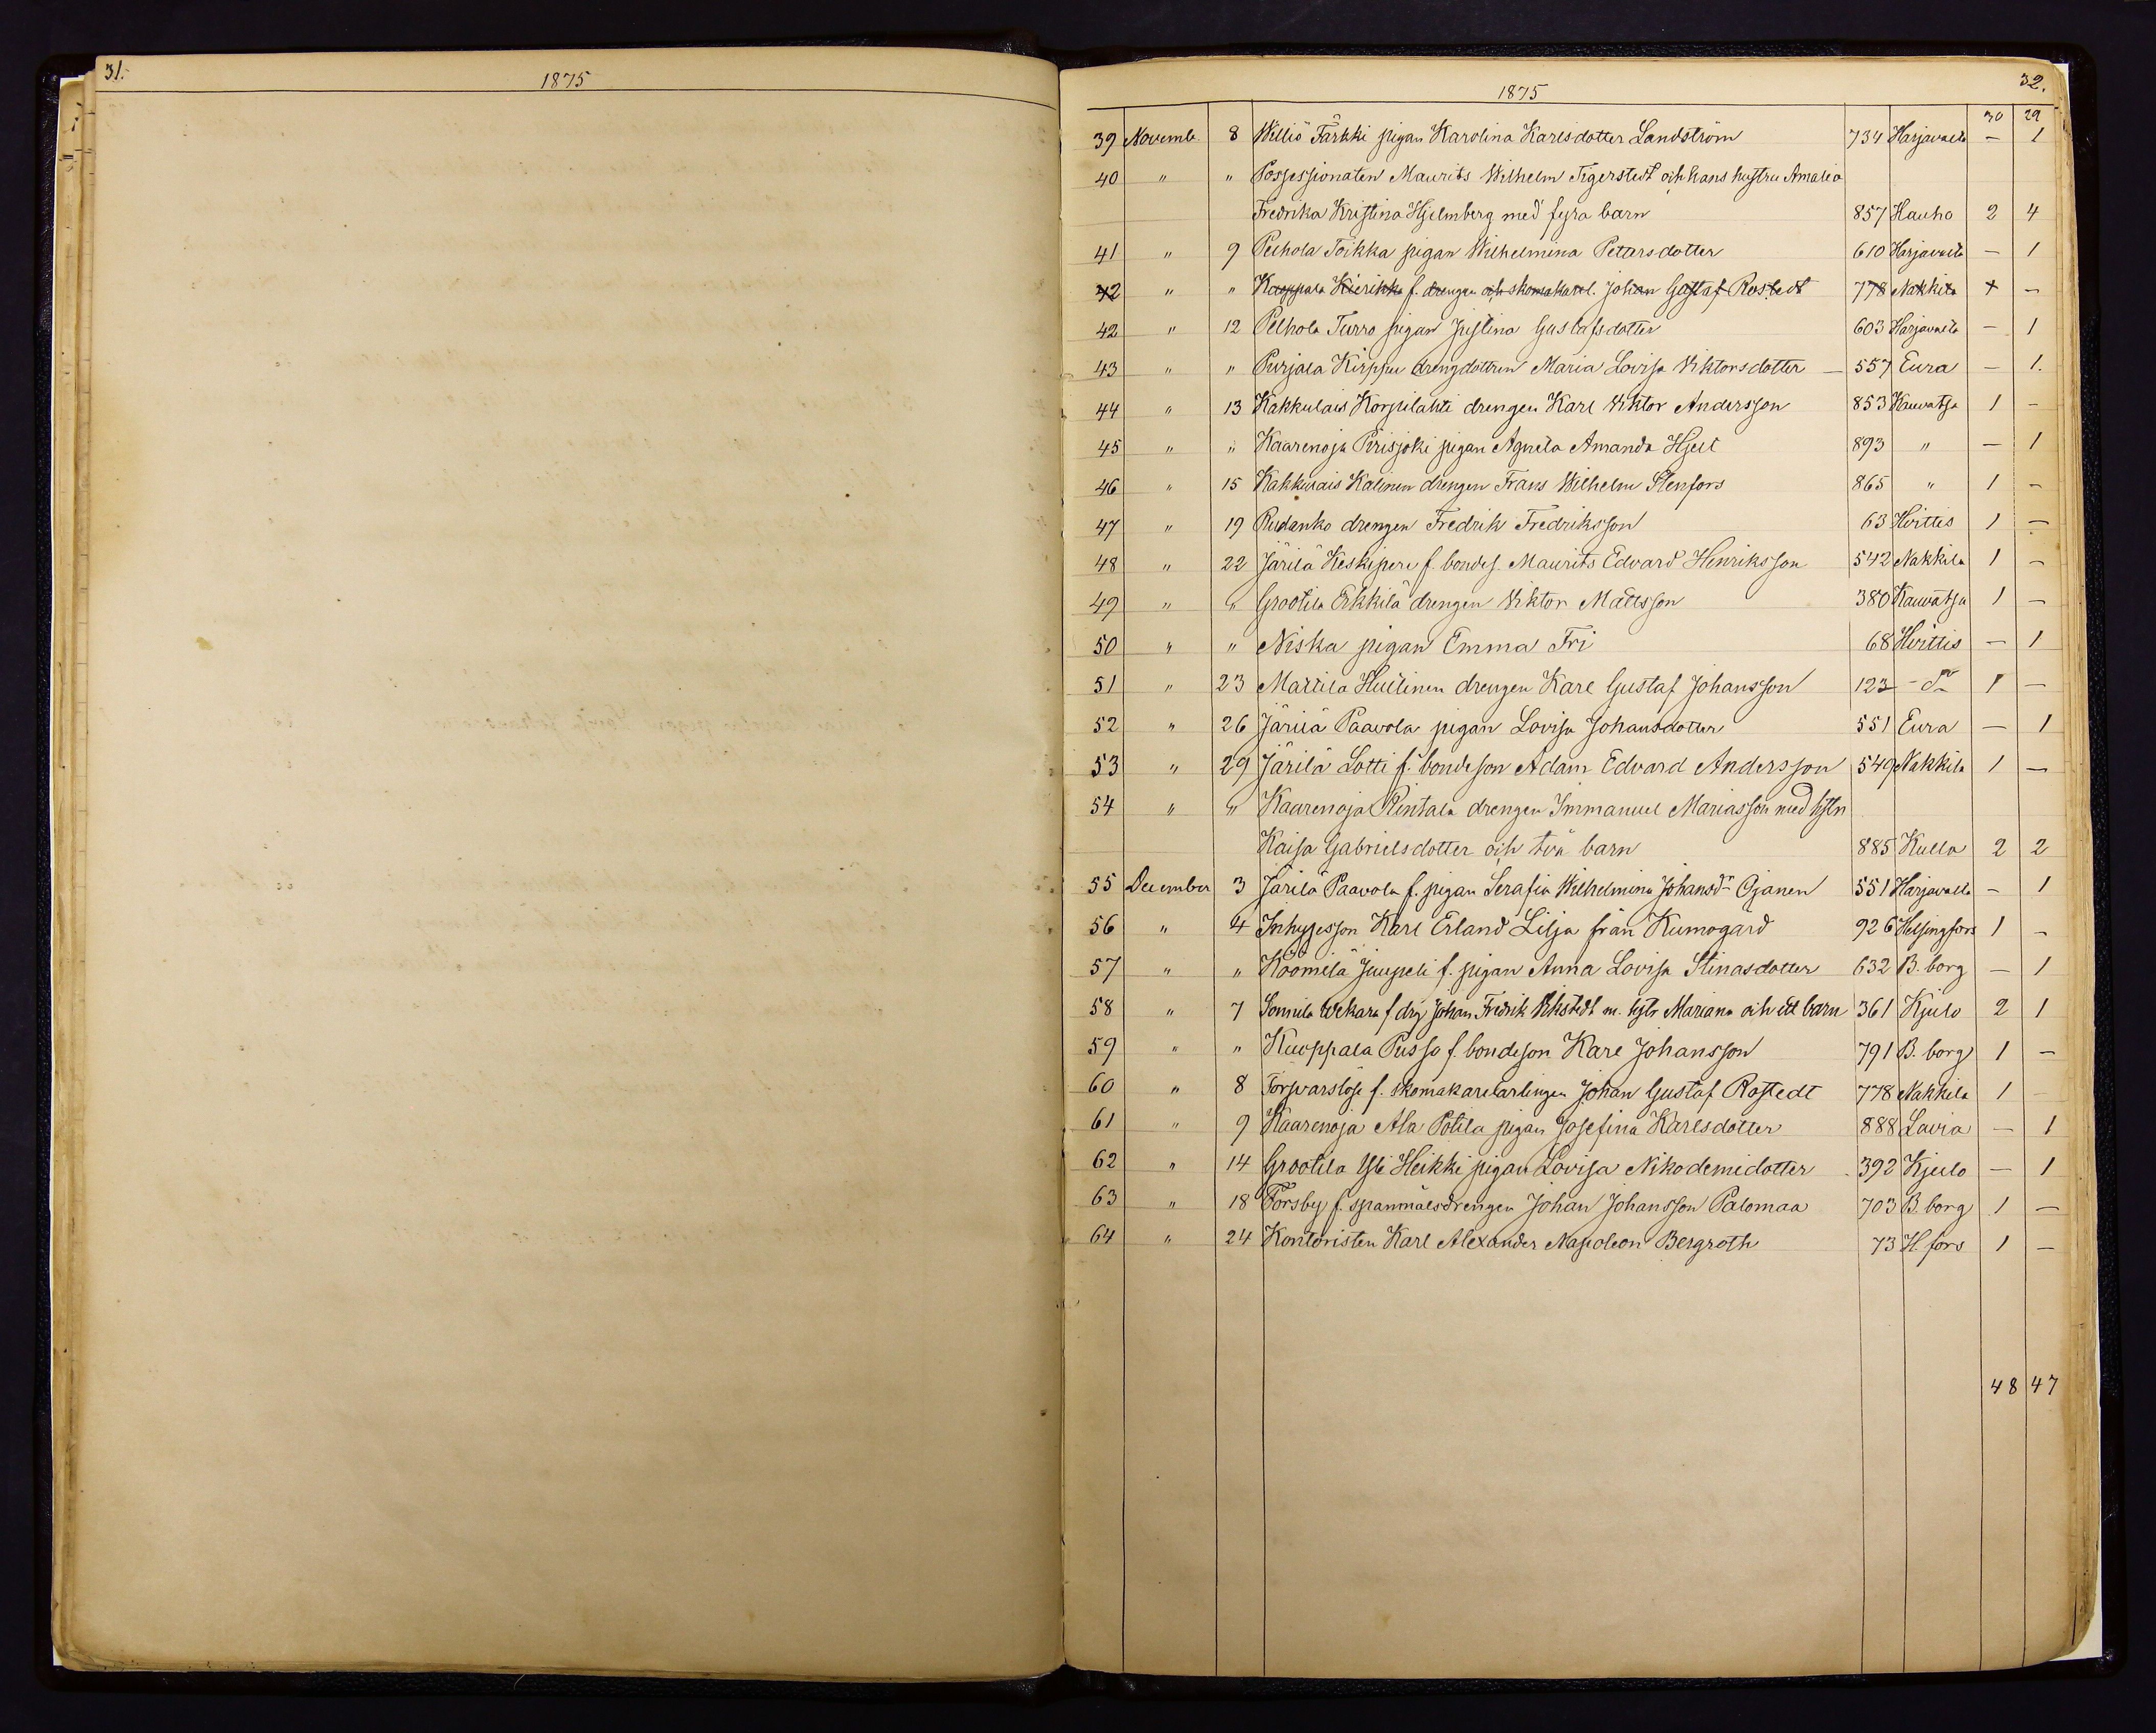 31.
1875
1875
32.
30 29
39 Novemb. 8 Williö Färkki pigan Karolina Karlsdotter Landström 734 Harjavalla — 1
40 " " Possessionaten Maurits Wilhelm Tigerstedt och hans hustru Amalia
Fredrika Kristina Hjelmberg med fyra barn 857 Hauho 2 4
41 " 9 Pelhola Toikka pigan Wilhelmina Petersdotter 610 Harjavalla — 1
42 " " Kuoppala Kierikka f. drengen och skomakarel. Johan Gustaf Rostedt 778 Nakkila 1 —
42 " 12 Pelhola Turro pigan Justina Gustafsdotter 603 Harjavalla — 1
43 " " Purjala Kirppu drengdottren Maria Lovisa Viktorsdotter — 557 Eura — 1.
44 " 13 Kakkulais Korpilahti drengen Karl Viktor Andersson 853 Kauvatsa 1 —
45 " " Kaarenoja Pirisjoki pigan Agneta Amanda Hjelt 893 " — 1
46 " 15 Kakkulais Kalinen drengen Frans Wilhelm Stenfors 865 " 1 —
47 " 19 Rudanko drengen Fredrik Fredriksson 63 Hvittis 1 —
48 " 22 Järilä Keskipere f. bondes. Maurits Edvard Henriksson 542 Nakkila 1 —
49 " " Grootila Erkkilä drengen Viktor Mattsson 380 Kauvatsa 1 —
50 " " Niska pigan Emma Fri 68 Hvittis — 1
51 " 23 Mattila Huilinen drengen Karl Gustaf Johansson 123 - do 1 —
52 " 26 Järilä Paavola pigan Lovisa Johansdotter 551 Eura — 1
53 " 29 Järilä Lotti f. bondeson Adam Edvard Andersson 549 Nakkila 1 —
54 " " Kaarenoja Rintala drengen Immanuel Mariasson med hstn
Kaisa Gabrielsdotter och två barn 885 Kulla 2 2
55 December 3 Järilä Paavola f. pigan Serafia Wilhelmina Johansdr Ojanen 551 Harjavalla — 1
56 " 4 Inhysesson Karl Erland Lilja från Kumogård 926 Helsingfors 1 —
57 " " Köömilä Juupeli f. pigan Anna Lovisa Stinasdotter 632 B. borg — 1
58 " 7 Sonnila Wekara f drg Johan Fredrik Vikstedt m. hstr Mariana och ett barn 361 Kjulo 2 1
59 " " Kuoppala Pusso f. bondeson Karl Johansson 791 B. borg 1 —
60 " 8 Försvarslöse f. skomakarelärlingen Johan Gustaf Rostedt 778 Nakkila 1 —
61 " 9 Kaarenoja Ala Potila pigan Josefina Karlsdotter 888 Lavia — 1
62 " 14 Grootila Yli Heikki pigan Lovisa Nikodemidotter 392 Kjulo — 1
63 " 18 Forsby f. spannmålsdrengen Johan Johansson Palomaa 703 B. borg 1 —
64 " 24 Kontoristen Karl Alexander Napoleon Bergroth 73 H fors 1 —
48 47